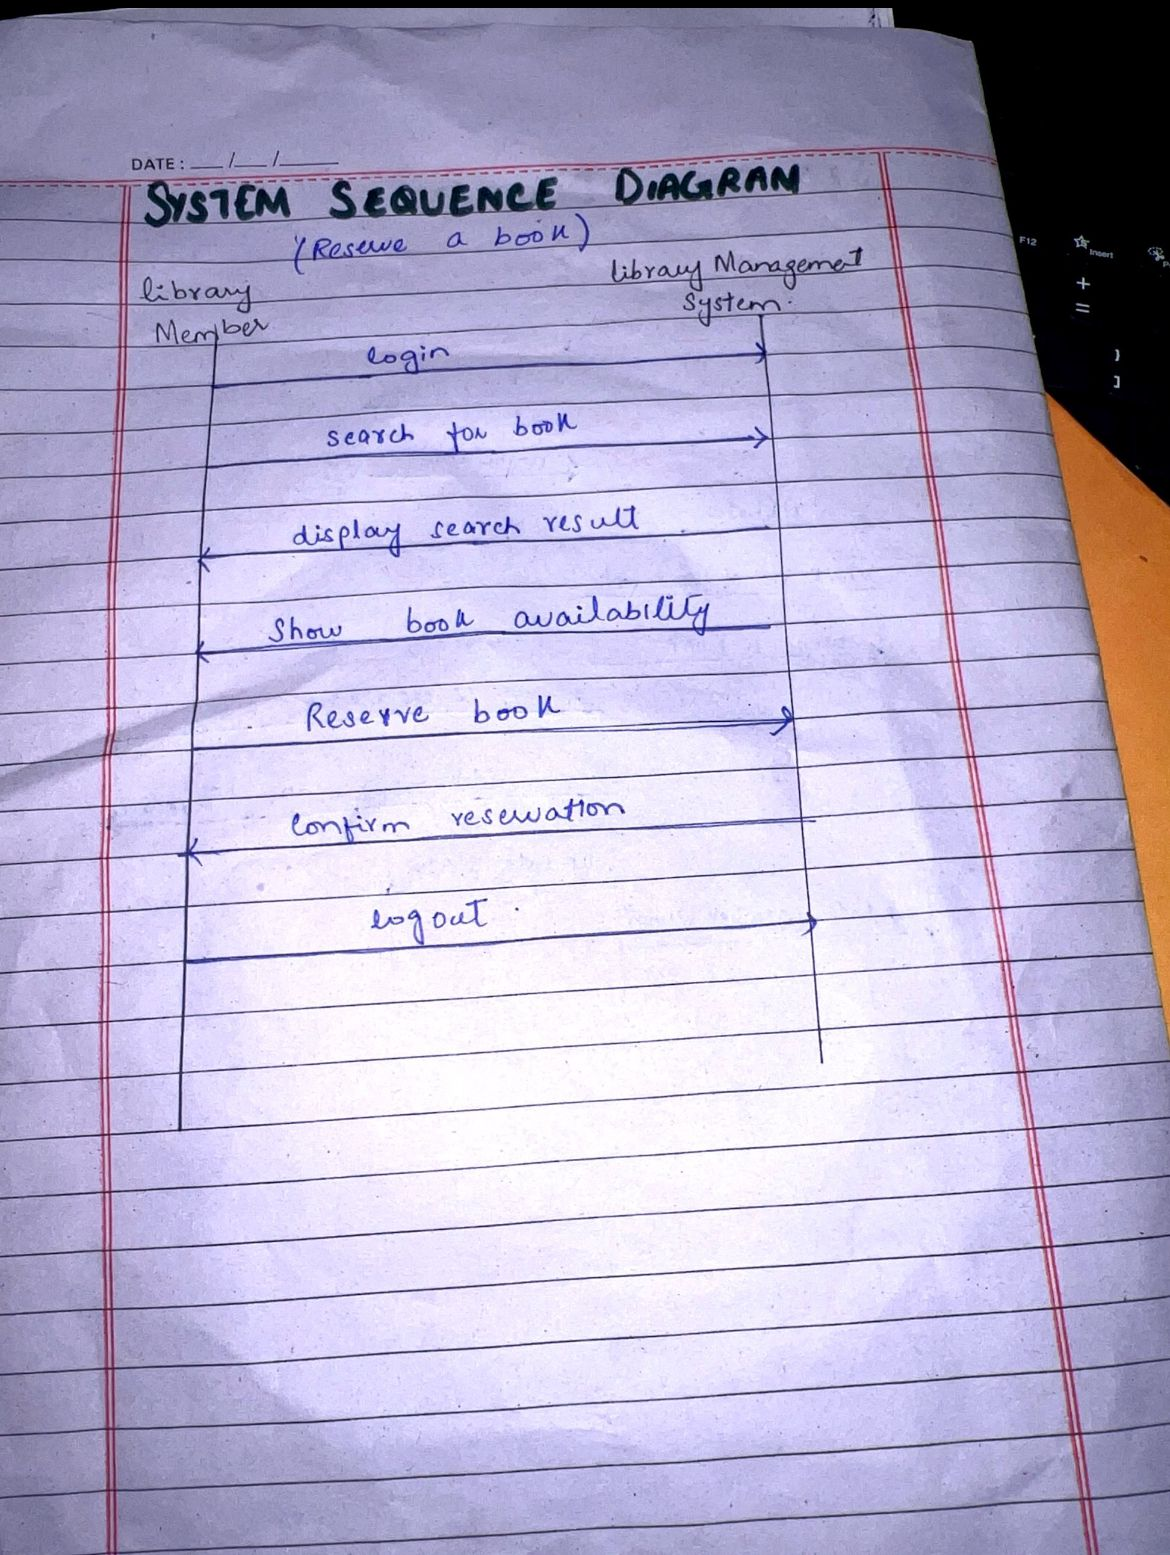 DATE : __/__/____
SYSTEM SEQUENCE DIAGRAM
(Reserve a book)
library Management
System.
library
Member
login
search for book
display search result
Show book availability
Reserve book
Confirm reservation
logout
F12
Insert
+
=
}
]